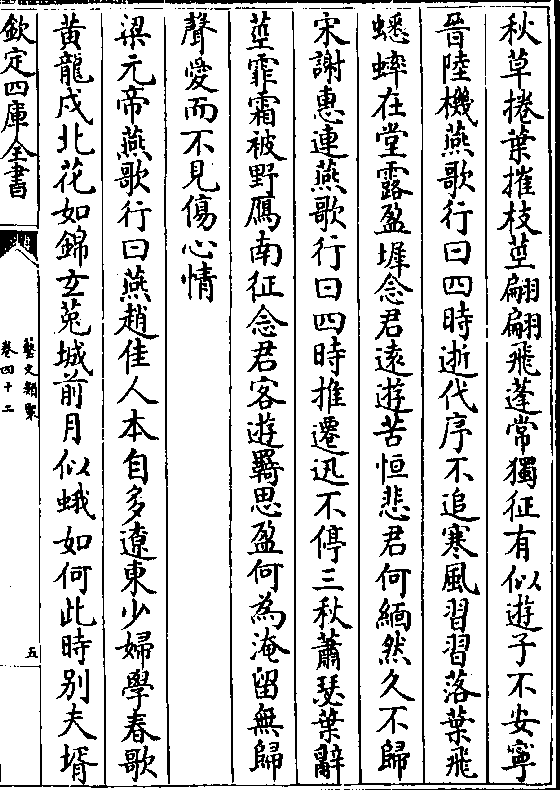 秋草捲葉摧枝莖翩翩飛蓬常獨征有似遊子不安寧
晉陸機燕歌行曰四時逝代序不追寒風習習落葉飛
蟋蟀在堂露盈墀念君遠遊苦恒悲君何緬然久不歸
宋謝惠連燕歌行曰四時推遷迅不停三秋蕭瑟葉辭
莖霏霜被野鴈南征念君客遊羇思盈何為淹留無歸
聲愛而不見傷心情
梁元帝燕歌行曰燕趙佳人本自多遼東少婦學春歌
黄龍戍北花如錦玄菟城前月似蛾如何此時别夫壻
欽定四庫全書
藝文類聚
卷四十二
五